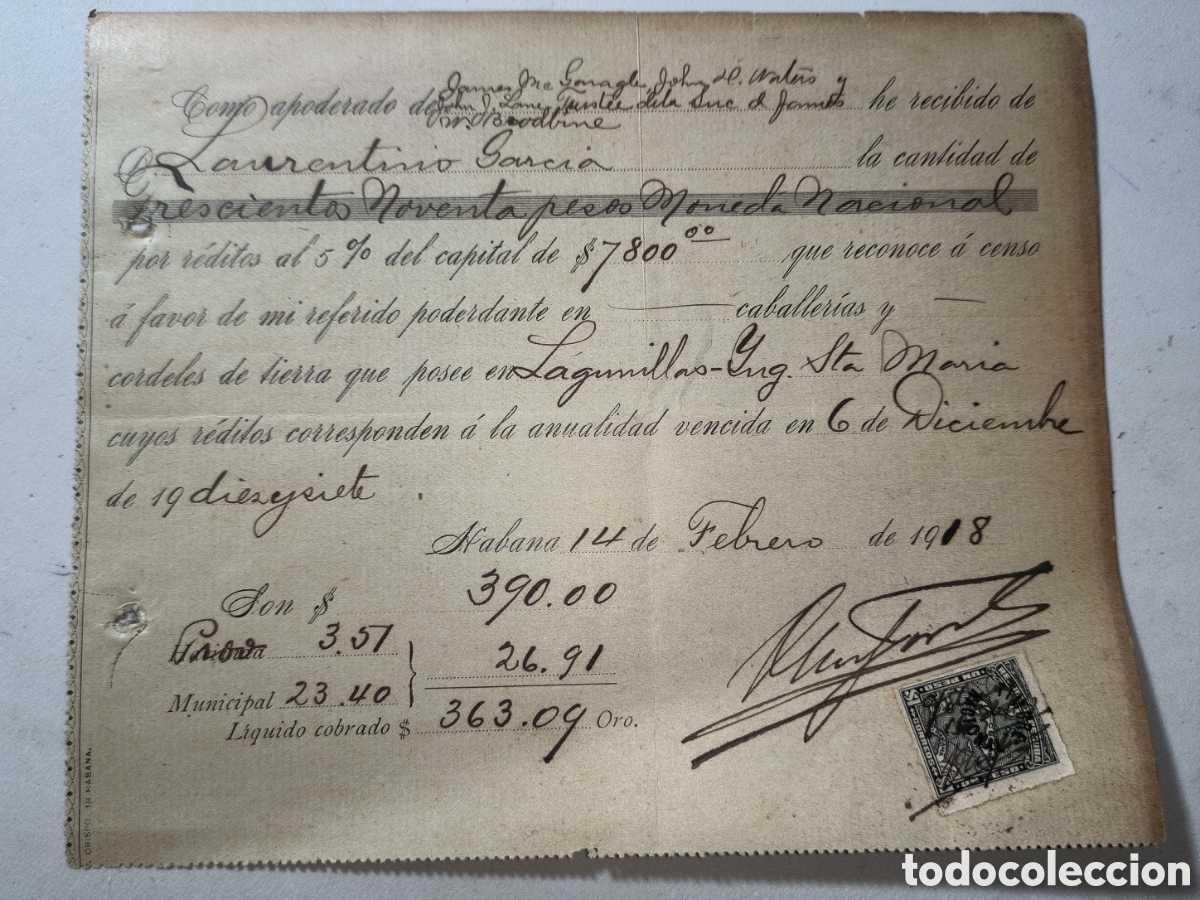 James Mc Gonagle, John H. Waters y
Como apoderado de John J. Lane Trustee de la Suc d James he recibido de
W. Woodbine
D. Laurentino Garcia la cantidad de
Trescientos Noventa pesos Moneda Nacional
por réditos al 5 % del capital de $ 7800 00 que reconoce á censo
á favor de mi referido poderdante en — caballerías y —
cordeles de tierra que posee en Lagunillas - Yng. Sta Maria
cuyos réditos corresponden á la anualidad vencida en 6 de Diciembre
de 19 diez y siete.
Habana 14 de Febrero de 1918
Son $ 390.00
3.51
26.91
Municipal 23.40
Líquido cobrado $ 363.09 Oro.
OBISPO 18 HABANA.
todocoleccion